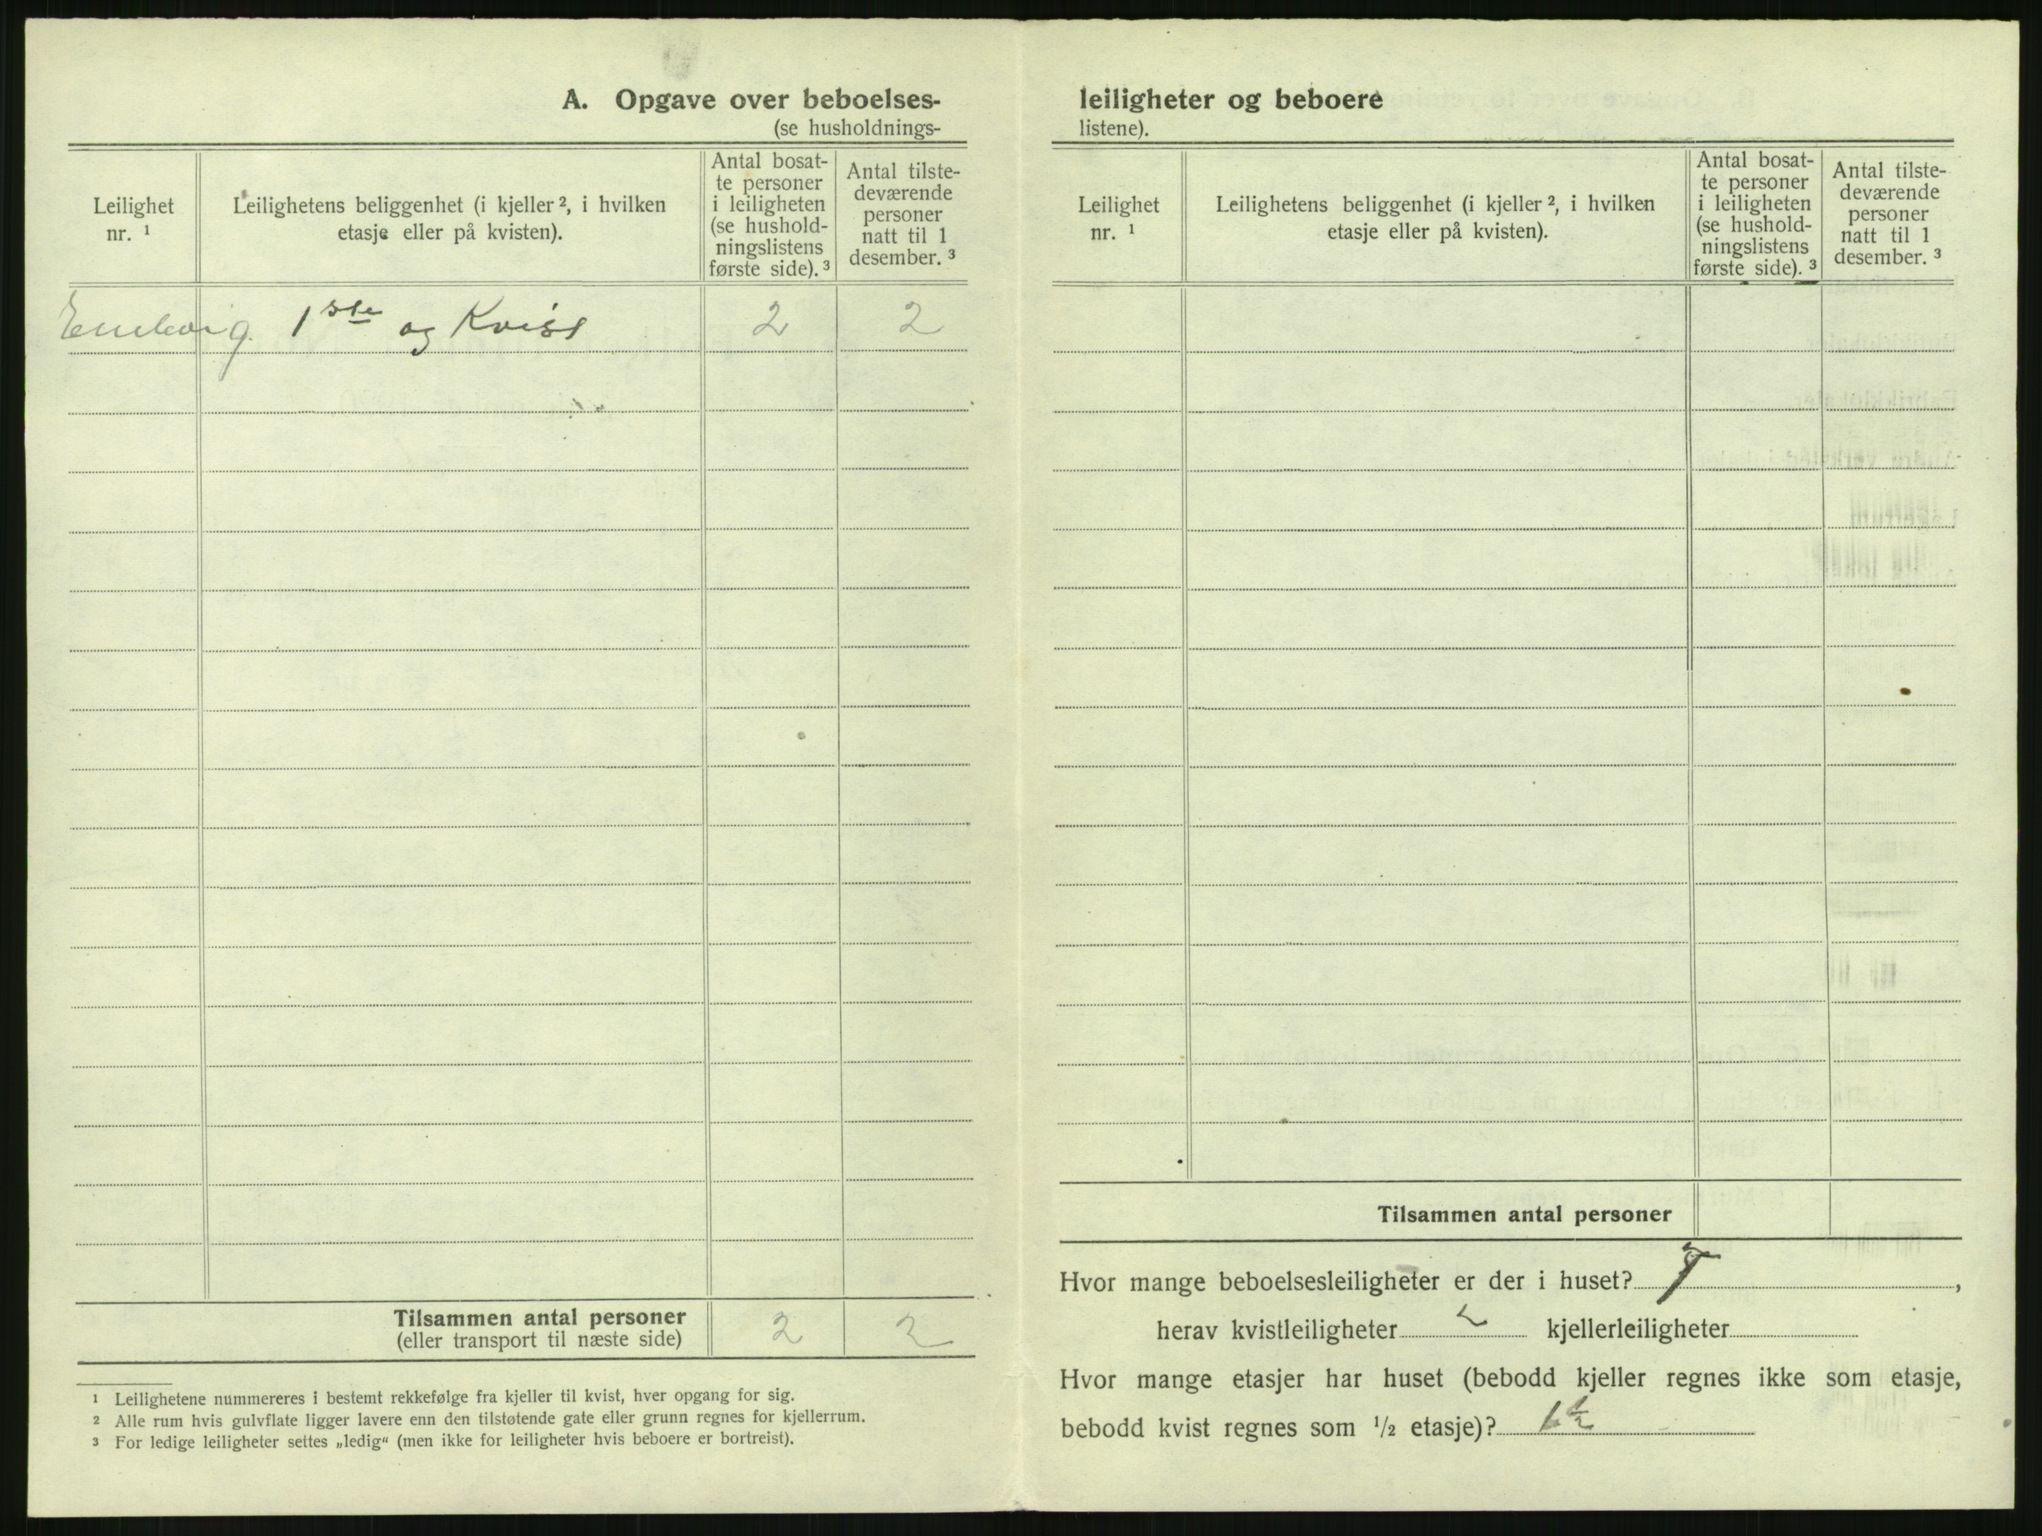 A. Opgave over beboelses-
(se husholdnings-
Leilighet
nr. ¹
Leilighetens beliggenhet (i kjeller ², i hvilken
etasje eller på kvisten).
Antal bosat-
te personer
i leiligheten
(se hushold-
ningslistens
første side). ³
Antal tilste-
deværende
personer
natt til 1
desember. ³
1ste og Kvist 2 2
Tilsammen antal personer 2 2
(eller transport til næste side)
¹ Leilighetene nummereres i bestemt rekkefølge fra kjeller til kvist, hver opgang for sig.
² Alle rum hvis gulvflate ligger lavere enn den tilstøtende gate eller grunn regnes for kjellerrum.
³ For ledige leiligheter settes „ledig“ (men ikke for leiligheter hvis beboere er bortreist).
leiligheter og beboere
listene).
Leilighet
nr. ¹
Leilighetens beliggenhet (i kjeller ², i hvilken
etasje eller på kvisten).
Antal bosat-
te personer
i leiligheten
(se hushold-
ningslistens
første side). ³
Antal tilste-
deværende
personer
natt til 1
desember. ³
Tilsammen antal personer
Hvor mange beboelsesleiligheter er der i huset? ,
herav kvistleiligheter kjellerleiligheter
Hvor mange etasjer har huset (bebodd kjeller regnes ikke som etasje,
bebodd kvist regnes som ½ etasje)? 1½